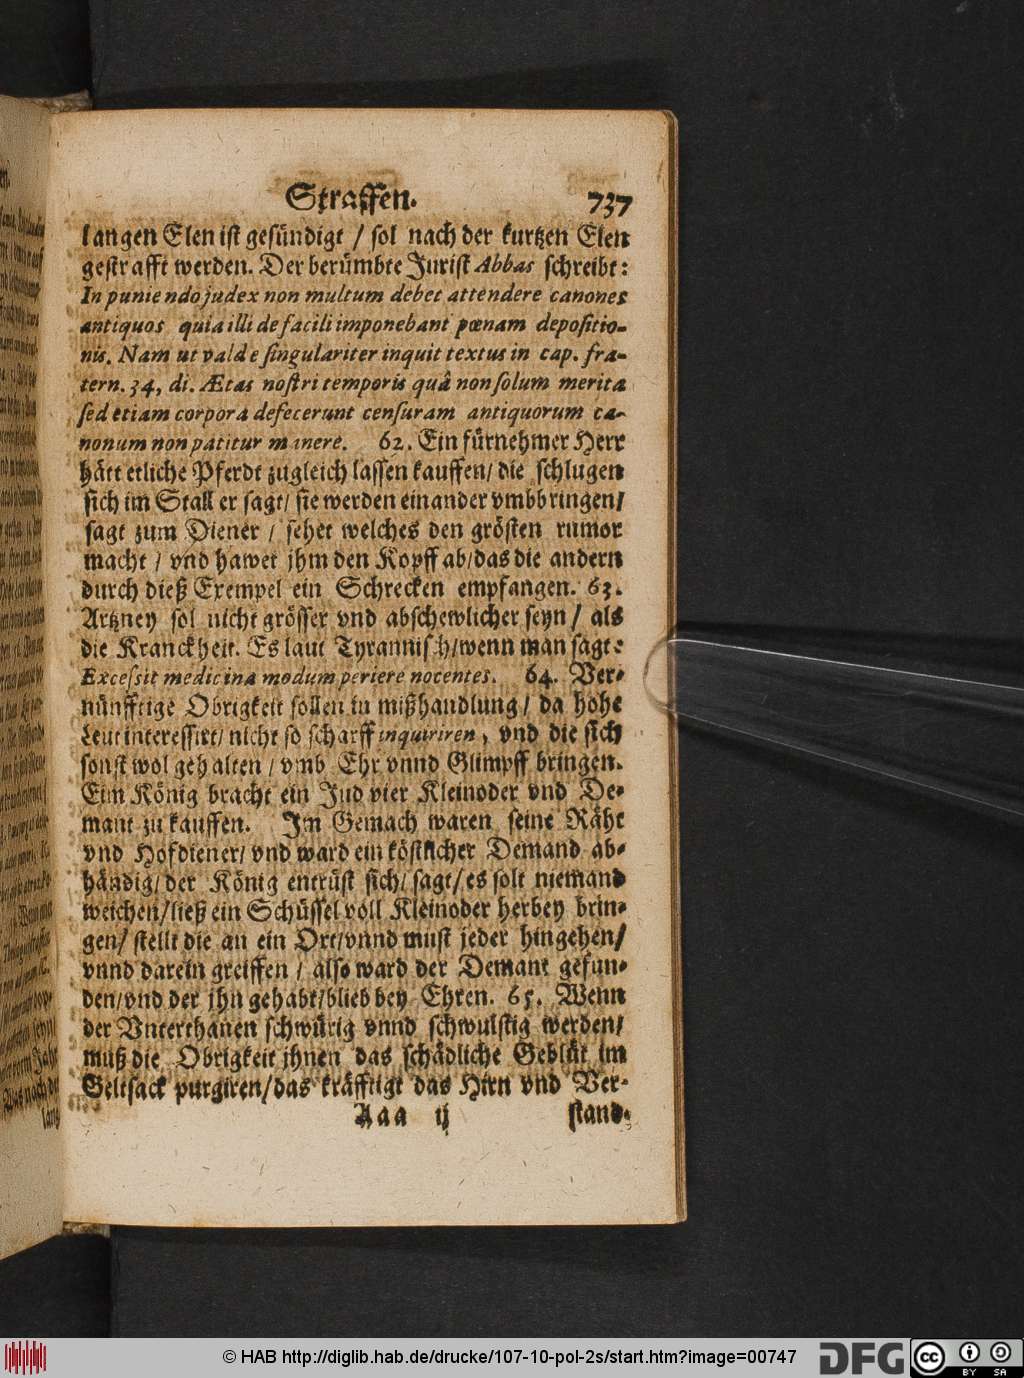 Straffen. 737
langen Elen ist gesündigt / sol nach der kurtzen Elen
gestrafft werden. Der berümbte Jurist Abbas schreibt:
In puniendo judex non multum debet attendere canones
antiquos quia illi de facili imponebant pœnam depositio-
nis. Nam ut valde singulariter inquit textus in cap. fra-
tern. 34, di. Ætas nostri temporis quâ non solum merita
sed etiam corpora defecerunt censuram antiquorum ca-
nonum non patitur manere. 62. Ein fürnehmer Herr
hätt etliche Pferdt zugleich lassen kauffen/ die schlugen
sich im Stall er sagt/ sie werden einander vmbbringen/
sagt zum Diener / sehet welches den grösten rumor
macht / vnd hawet jhm den Kopff ab/das die andern
durch dieß Exempel ein Schrecken empfangen. 63.
Artzney sol nicht grösser vnd abschewlicher seyn / als
die Kranckheit. Es laut Tyrannisch/wenn man sagt:
Excessit medicina modum periere nocentes. 64. Ver-
nünfftige Obrigkeit sollen in mißhandlung / da hohe
Leut interessirt/ nicht so scharff inquiriren, vnd die sich
sonst wol gehalten / vmb Ehr vnnd Glimpff bringen.
Eim König bracht ein Jud vier Kleinoder vnd De-
mant zu kauffen. Im Gemach waren seine Räht
vnd Hofdiener/ vnd ward ein köstlicher Demand ab-
händig/ der König entrüst sich/ sagt/ es solt niemand
weichen/ließ ein Schüssel voll Kleinoder herbey brin-
gen/ stellt die an ein Ort/vnnd must jeder hingehen/
vnnd darein greiffen / also ward der Demant gefun-
den/vnd der jhn gehabt/blieb bey Ehren. 65. Wenn
der Vnterthanen schwürig vnnd schwulstig werden/
muß die Obrigkeit jhnen das schädliche Geblüt im
Geltsack purgiren/das kräfftigt das Hirn vnd Ver-
Aaa ij stand-
© HAB http://diglib.hab.de/drucke/107-10-pol-2s/start.htm?image=00747
DFG
cc BY SA